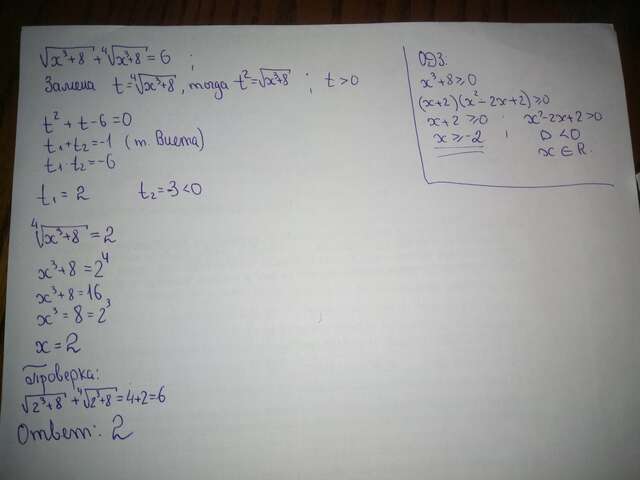 √(x³+8) + ⁴√(x³+8) = 6 ;
Замена t = ⁴√(x³+8), тогда t² = √(x³+8) ; t > 0
t² + t - 6 = 0
t₁ + t₂ = -1 (т. Виета)
t₁ · t₂ = -6
t₁ = 2 t₂ = -3 < 0
⁴√(x³+8) = 2
x³+8 = 2⁴
x³+8 = 16
x³ = 8 = 2³
x = 2
Проверка:
√(2³+8) + ⁴√(2³+8) = 4+2 = 6
Ответ: 2
ОДЗ.
x³+8 ≥ 0
(x+2)(x²-2x+2) ≥ 0
x+2 ≥ 0 x²-2x+2 > 0
x ≥ -2 ; D < 0
x ∈ R.